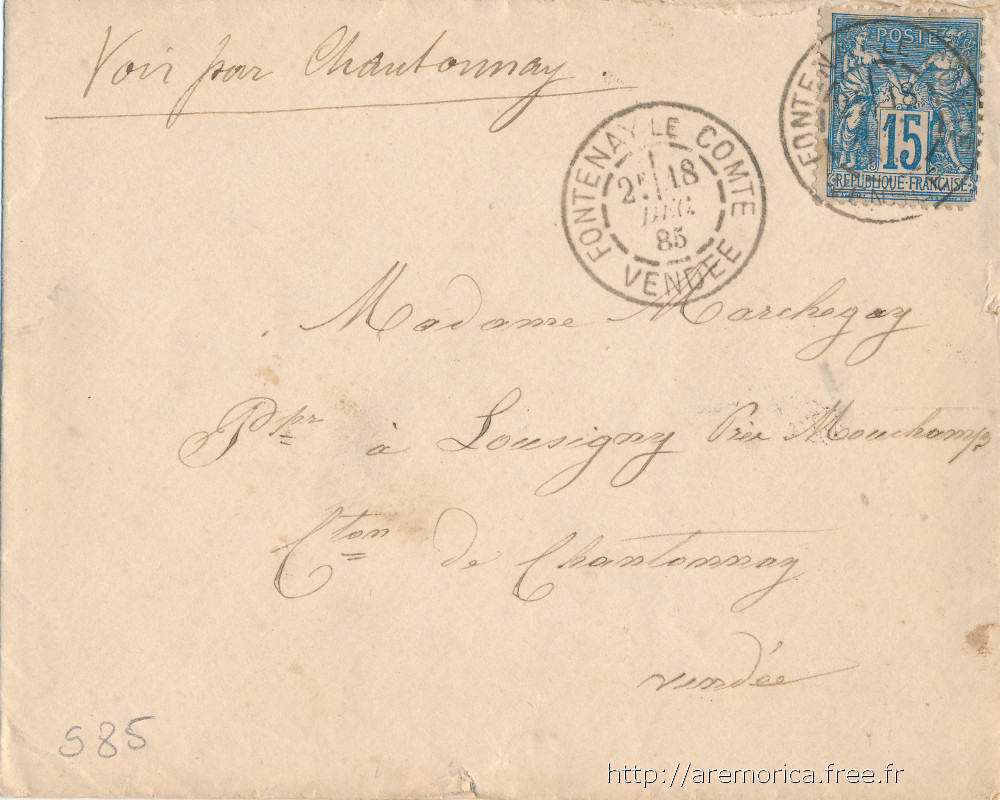 Voir par Chantonnay.
POSTE
15
REPUBLIQUE FRANÇAISE
FONTEN LE
18
FONTENAY LE COMTE
2E 18
DEC.
85
VENDÉE
Madame Marchegay
Ppre à Lousigny Près Mouchamps
Cton de Chantonnay
vendée
S85
http://aremorica.free.fr